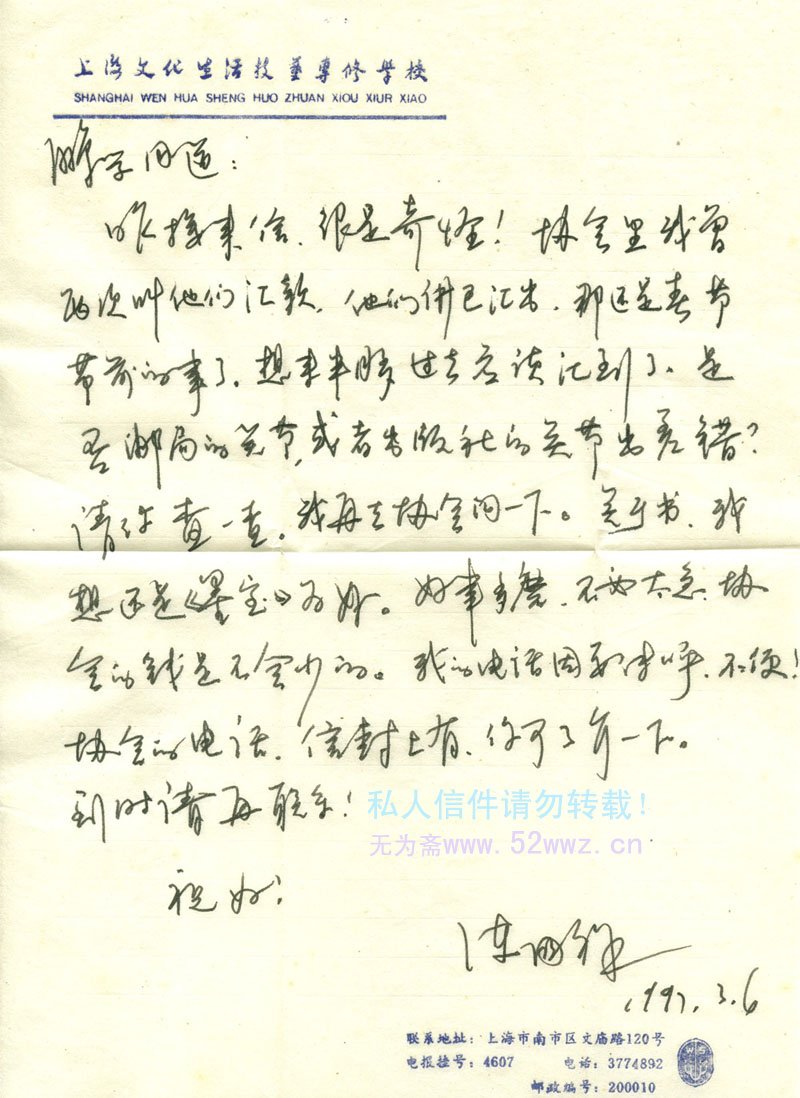 上海文化生活技艺专修学校
SHANGHAI WEN HUA SHENG HUO ZHUAN XIOU XIUR XIAO
学同道：
昨接来信，很是奇怪！协会里我曾
两次叫他们汇款，他们併已汇出，那还是春节
节前的事了，想来半月多过去应该汇到了，是
否邮局的关节，或者出版社的关节出差错？
请你查一查。我再去协会问一下。关于书，我
想还是《墨宝》为好。好事多磨，不要太急，协
会的钱是不会少的。我的电话因要传呼，不便！
协会的电话，信封上有，你可了解一下。
到时请再联系！
私人信件请勿转载！
无为斋www.52wwz.cn
祝好！
1997.3.6
联系地址：上海市南市区文庙路120号
电报挂号：4607 电话：3774892
邮政编号：200010